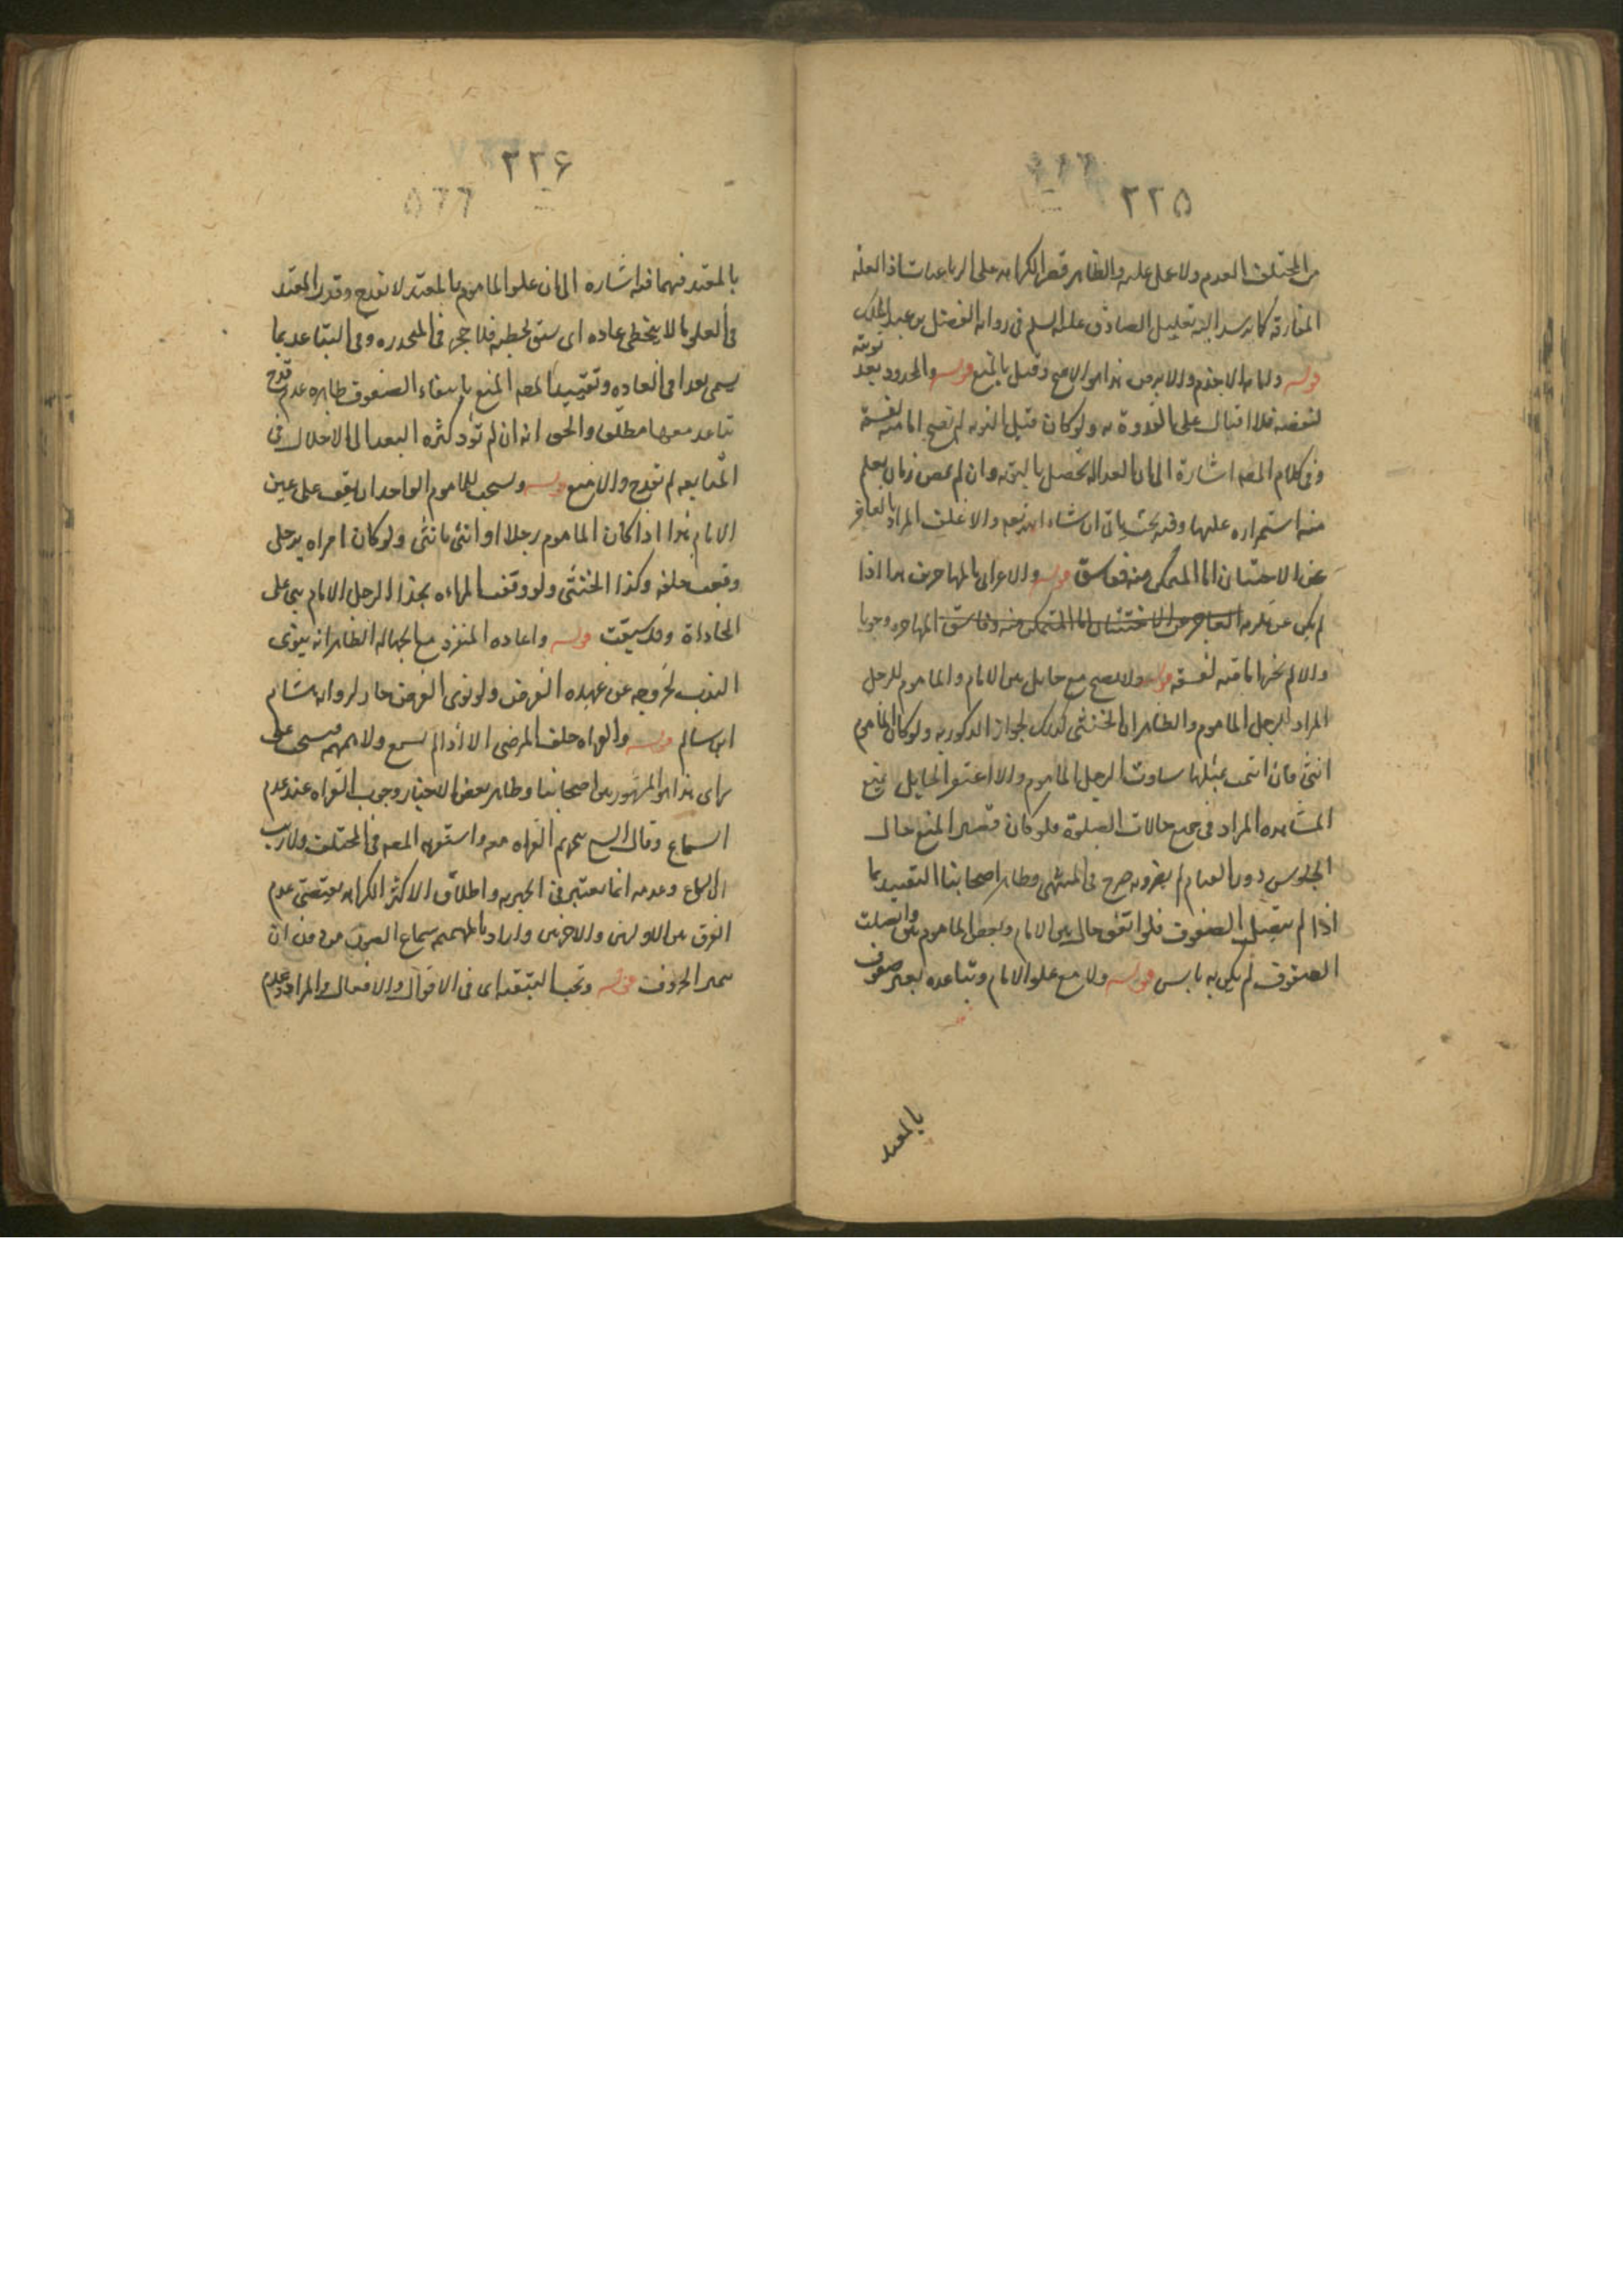 ٢٢٥
من المختلف العدم ولا عمل عليه والظاهر قصر الكراهه على الرباعيات اذ العله
المفارقة كما يرشد اليه تعليل الصادق عليه السلم فى روايه الفضل بن عبد الملك
قوله وامامه الاجذم والابرص هذا هو الاصح وقيل بالمنع قوله والمحدود بعد توبته
لنقصه فلا اقبال على القدوة به ولو كان قبل التوبه لم تصح امامته لفسقه
وفى كلام المصه اشارة الى ان العداله تحصل بالتوبه وان لم يمض زمان يعلم
منه استمراره عليها وفيه بحث ياتى ان شاء الله تعه والاغلف المراد به العاجز
عن الاختتان اما المتمكن منه ففاسق قوله والاعرابى بالمهاجرين هذا اذا
لم يكن ممن يلزمه العاجز عن الاختتان اما المتمكن منه ففاسق المهاجره وجوبا
والا لم يجز امامته لفسقه قوله ولا تصح مع حايل بين الامام والماموم للرجل
المراد الرجل الماموم والظاهر ان الخنثى كذلك لجواز الذكوريه ولو كان الماموم
انثى فان ائتمت بمثلها ساوت الرجل الماموم والا اغتفر الحايل يمنع
المشاهده المراد فى جميع حالات الصلوة فلو كان قصيرا يمنع حال
الجلوس دون القيام لم يضر وبه صرح فى المنتهى وظاهر اصحابنا التقييد بما
اذا لم تتصل الصفوف فلو اتفق حال بين الامام وبعض المامومين واتصلت
الصفوف لم يكن به باس قوله ولا مع علو الامام وتباعده بغير صفوف
بالمعتد
٢٢۶
٥٢٢
بالمعتد فيهما فيه اشاره الى ان علو الماموم بالمعتد لا يقدح وقدر المعتد
فى العلو بما لا يتخطى عاده اى يشق تخطيه فلا حجر فى المنحدره وفى التباعد بما
يسمى بعدا فى العاده وتقييد المصه المنع بانتفاء الصفوف ظاهره عدم قدح
تباعد معها مطلقا والحق انه ان لم تؤد كثره البعد الى الاخلال فى
المتابعه لم تقدح والا منع قوله ويستحب للماموم الواحد ان يقف على يمين
الامام هذا اذا كان الماموم رجلا او انثى بانثى ولو كان امراه برجل
وقفت خلفه وكذا الخنثى ولو وقفت المراءه بحذا الرجل الامام بنى على
المحاذاة وقد سبقت قوله واعاده المنفرد مع الجماعه الظاهر انه ينوى
الندب لخروجه عن عهده الفرض ولو نوى الفرض جاز لروايه هشام
ابن سالم قوله والقراه خلف المرضى الا اذا لم يسمع ولا همهمه فيستحب على
راى هذا هو المشهور بين اصحابنا وظاهر بعض الاخبار وجوب القراه عند عدم
السماع وقال الشيخ بتحريم القراه معه واستقربه المصه فى المختلف ولا ريب
ان السماع وعدمه انما يعتبر فى الجهريه واطلاق الاكثر الكراهه يقتضى عدم
الفرق بين الاوليين والاخيرتين واراد بالهمهمه سماع الصوت من دون ان
تميز الحروف قوله وتجب التبعيه اى فى الاقوال والافعال والمراد عدم